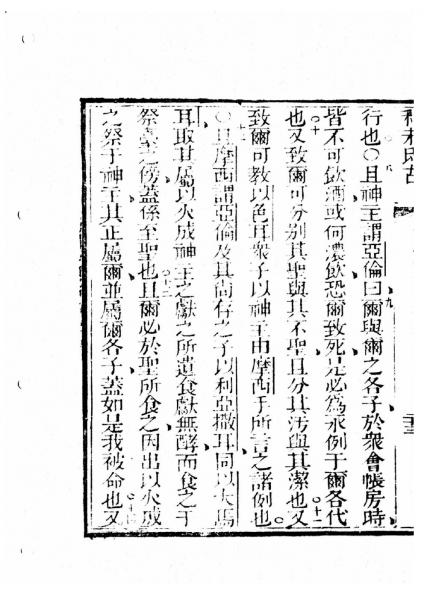 利未氏古
行也〇且神主謂亞倫曰爾與爾之各子於眾會帳房時
皆不可飲酒或何濃飲恐爾致死是必為永例于爾各代
也又致爾可分別其聖與其不聖且分其污與其潔也又
致爾可教以色耳眾子以神主由摩西手所言之諸例也
〇且摩西謂亞倫及其尚存之子以利亞撒耳同以大馬
耳取其屬以火成神主之獻之所遺食獻無酵而食之于
祭臺之傍蓋係至聖也且爾必於聖所食之因出以火成
之祭于神主其正屬爾並屬爾各子蓋如是我被命也又